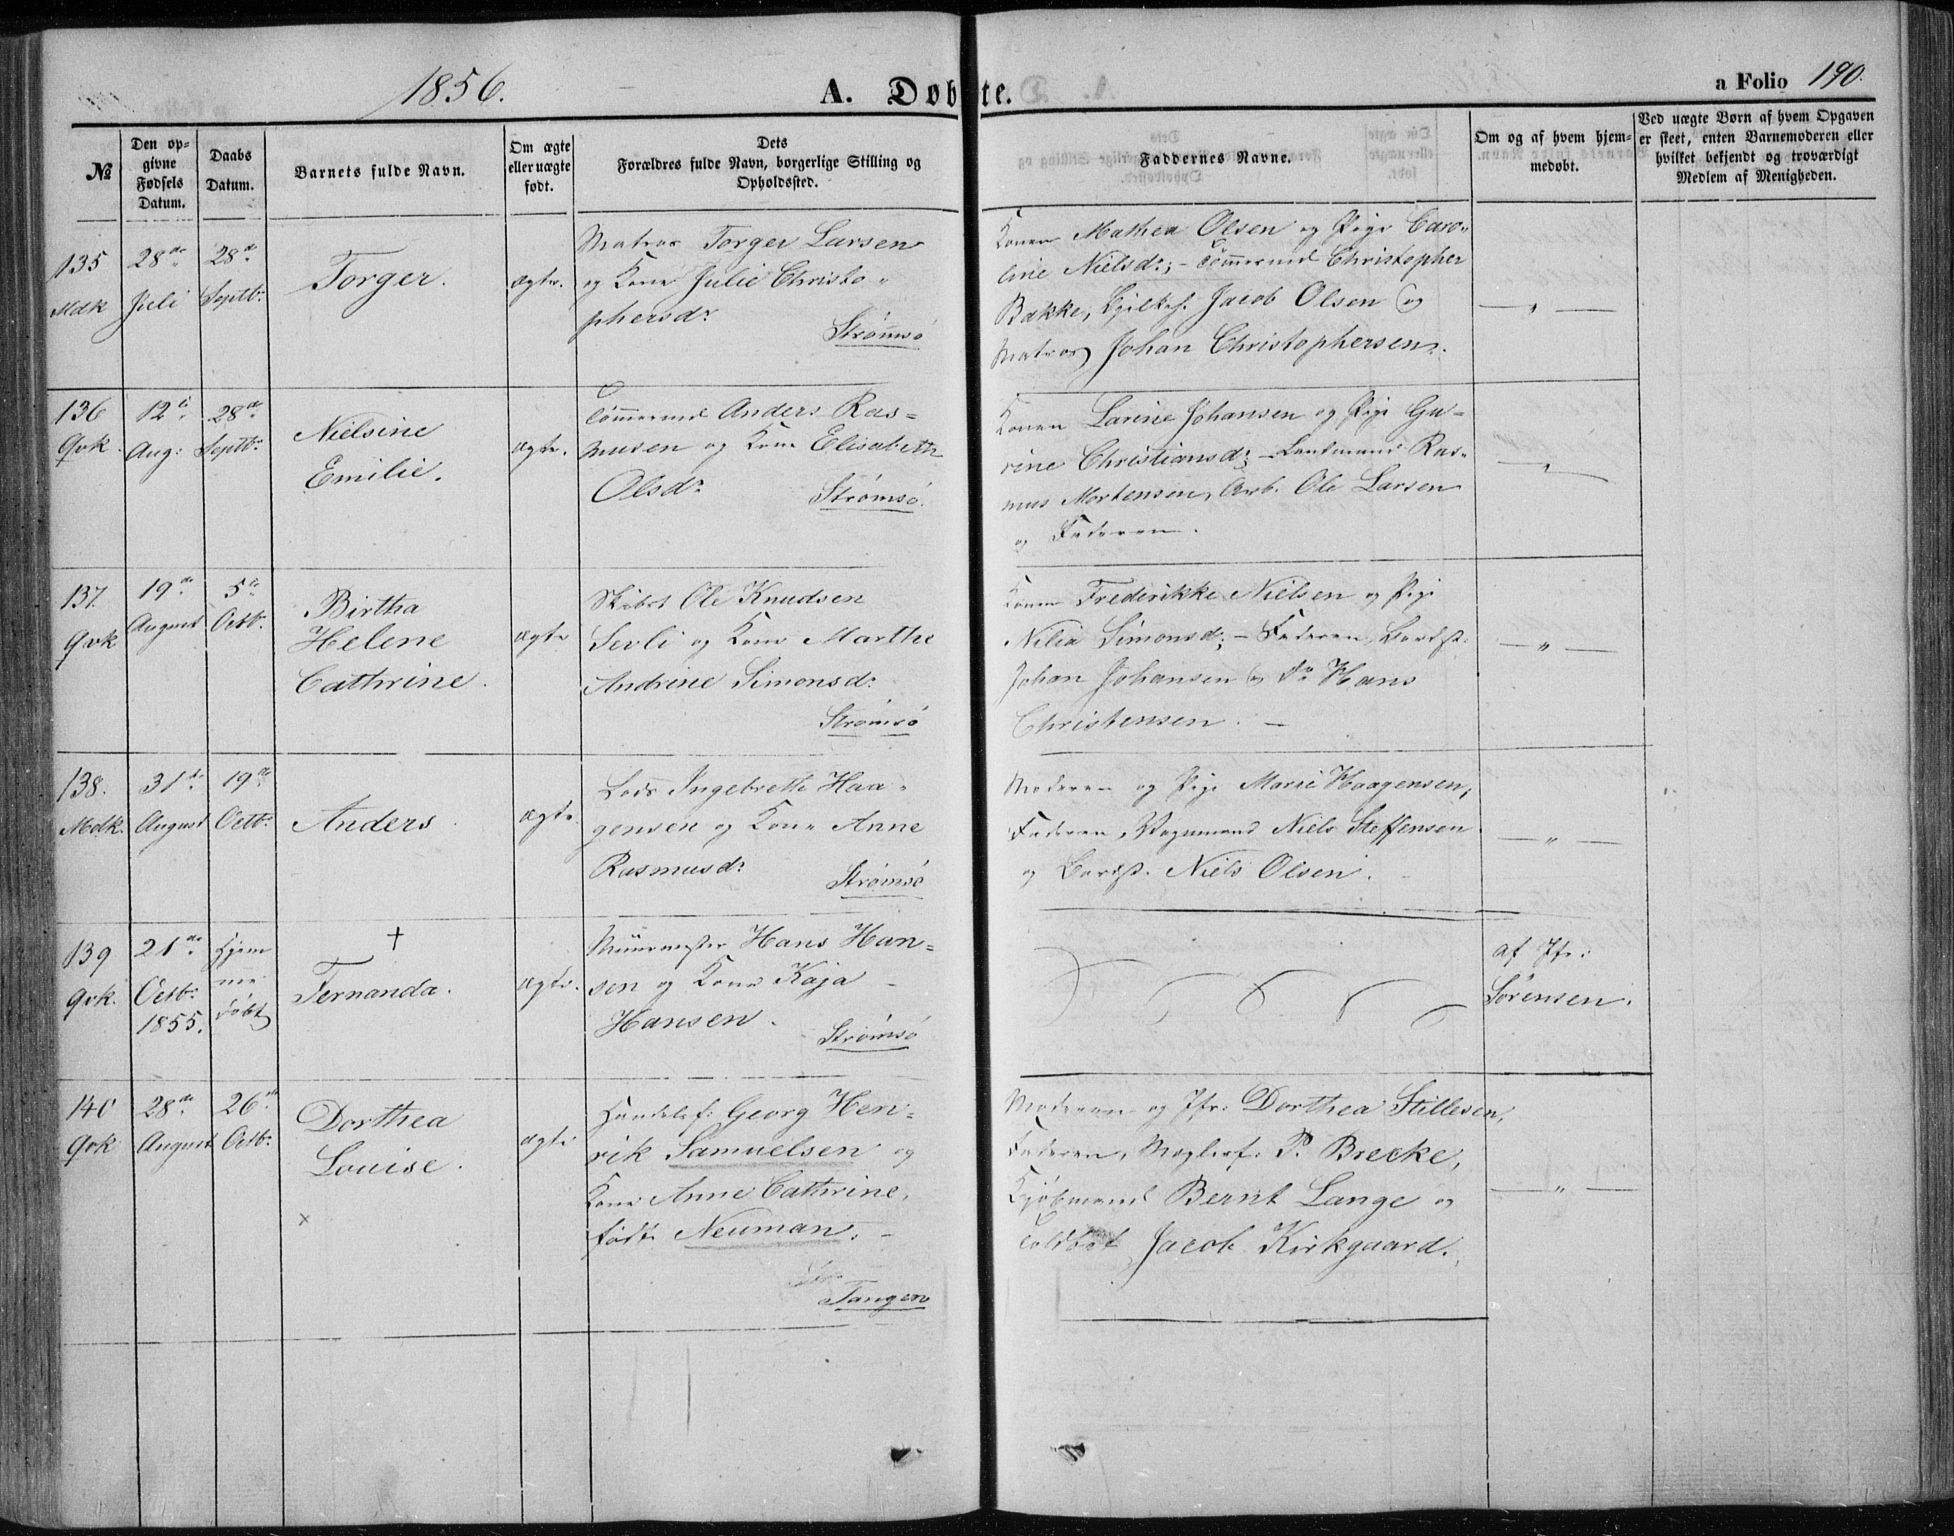 1856.
A. Døbte.
a Folio 190.
№
Den op-
givne
Fødsels
Datum.
Daabs
Datum.
Barnets fulde Navn.
Om ægte
eller uægte
født.
Dets
Forældres fulde Navn, borgerlige Stilling og
Opholdssted.
Faddernes Navne.
Om og af hvem hjem-
medøbt.
Ved uægte Børn af hvem Opgaven
er skeet, enten Barnemoderen eller
hvilket bekjendt og troværdigt
Medlem af Menigheden.
135
Mdk
28de
Juli
28de
Septbr.
Torger.
ægte.
Matros Torger Larsen
og Kone Julie Christo-
phersdr
Strømsø
Konen Mathea Olsen og Pige Caro-
line Nielsdr; – Tømmermd Christopher
Bakke, Jacob Olsen og
Matros Johan Christophersen.
— " —
136
Qvk.
12te
Aug:
28de
Septbr.
Nielsine
Emilie.
ægte.
Tømmermd Anders Ras-
musen og Kone Elisabeth
Olsdr
Strømsø.
Konen Larine Johansen og Pige Gu-
rine Christiansdr; – Landmand Ras-
mus Mortensen, Arb. Ole Larsen
og Faderen.
— " —
137.
Qvk
19de
August
5te
Octbr.
Birtha
Helene
Cathrine.
ægte
Skibst Ole Knudsen
Sevli og Kone Marthe
Andrine Simonsdr
Strømsø
Konen Frederikke Nielsen og Pige
Nilia Simonsd; – Faderen,
Johan Johansen og Do Hans
Christensen. —
— " —
138.
Mdk.
31te
August
19de
Octbr.
Anders.
ægte.
Lods Ingebreth Haa-
gensen og Kone Anne
Rasmusdr
Strømsø
Moderen og Pige Marie Haagensen,
Faderen, Vognmand Niels Steffensen
og Niels Olsen.
— " —
139
Qvk.
21de
Octbr.
1855.
Hjem-
me
døbt
†
Fernanda.
ægte.
Muurmester Hans Han-
sen og Kone Kaja
Hansen.
Strømsø
af Jfr.
Sørensen.
140
Qvk
28de
August
26de
Octbr.
Dorthea
Louise.
×
ægte
Handelsf: Georg Hen-
rik Samuelsen og
Kone Anne Cathrine,
født Neuman. –
Tangen
Moderen og Jfr: Dorthea Stillesen,
Faderen, Mæglerf. P. Brecke,
Kjøbmand Bernt Lange og
Toldbet. Jacob Kirkgaard.
— " —